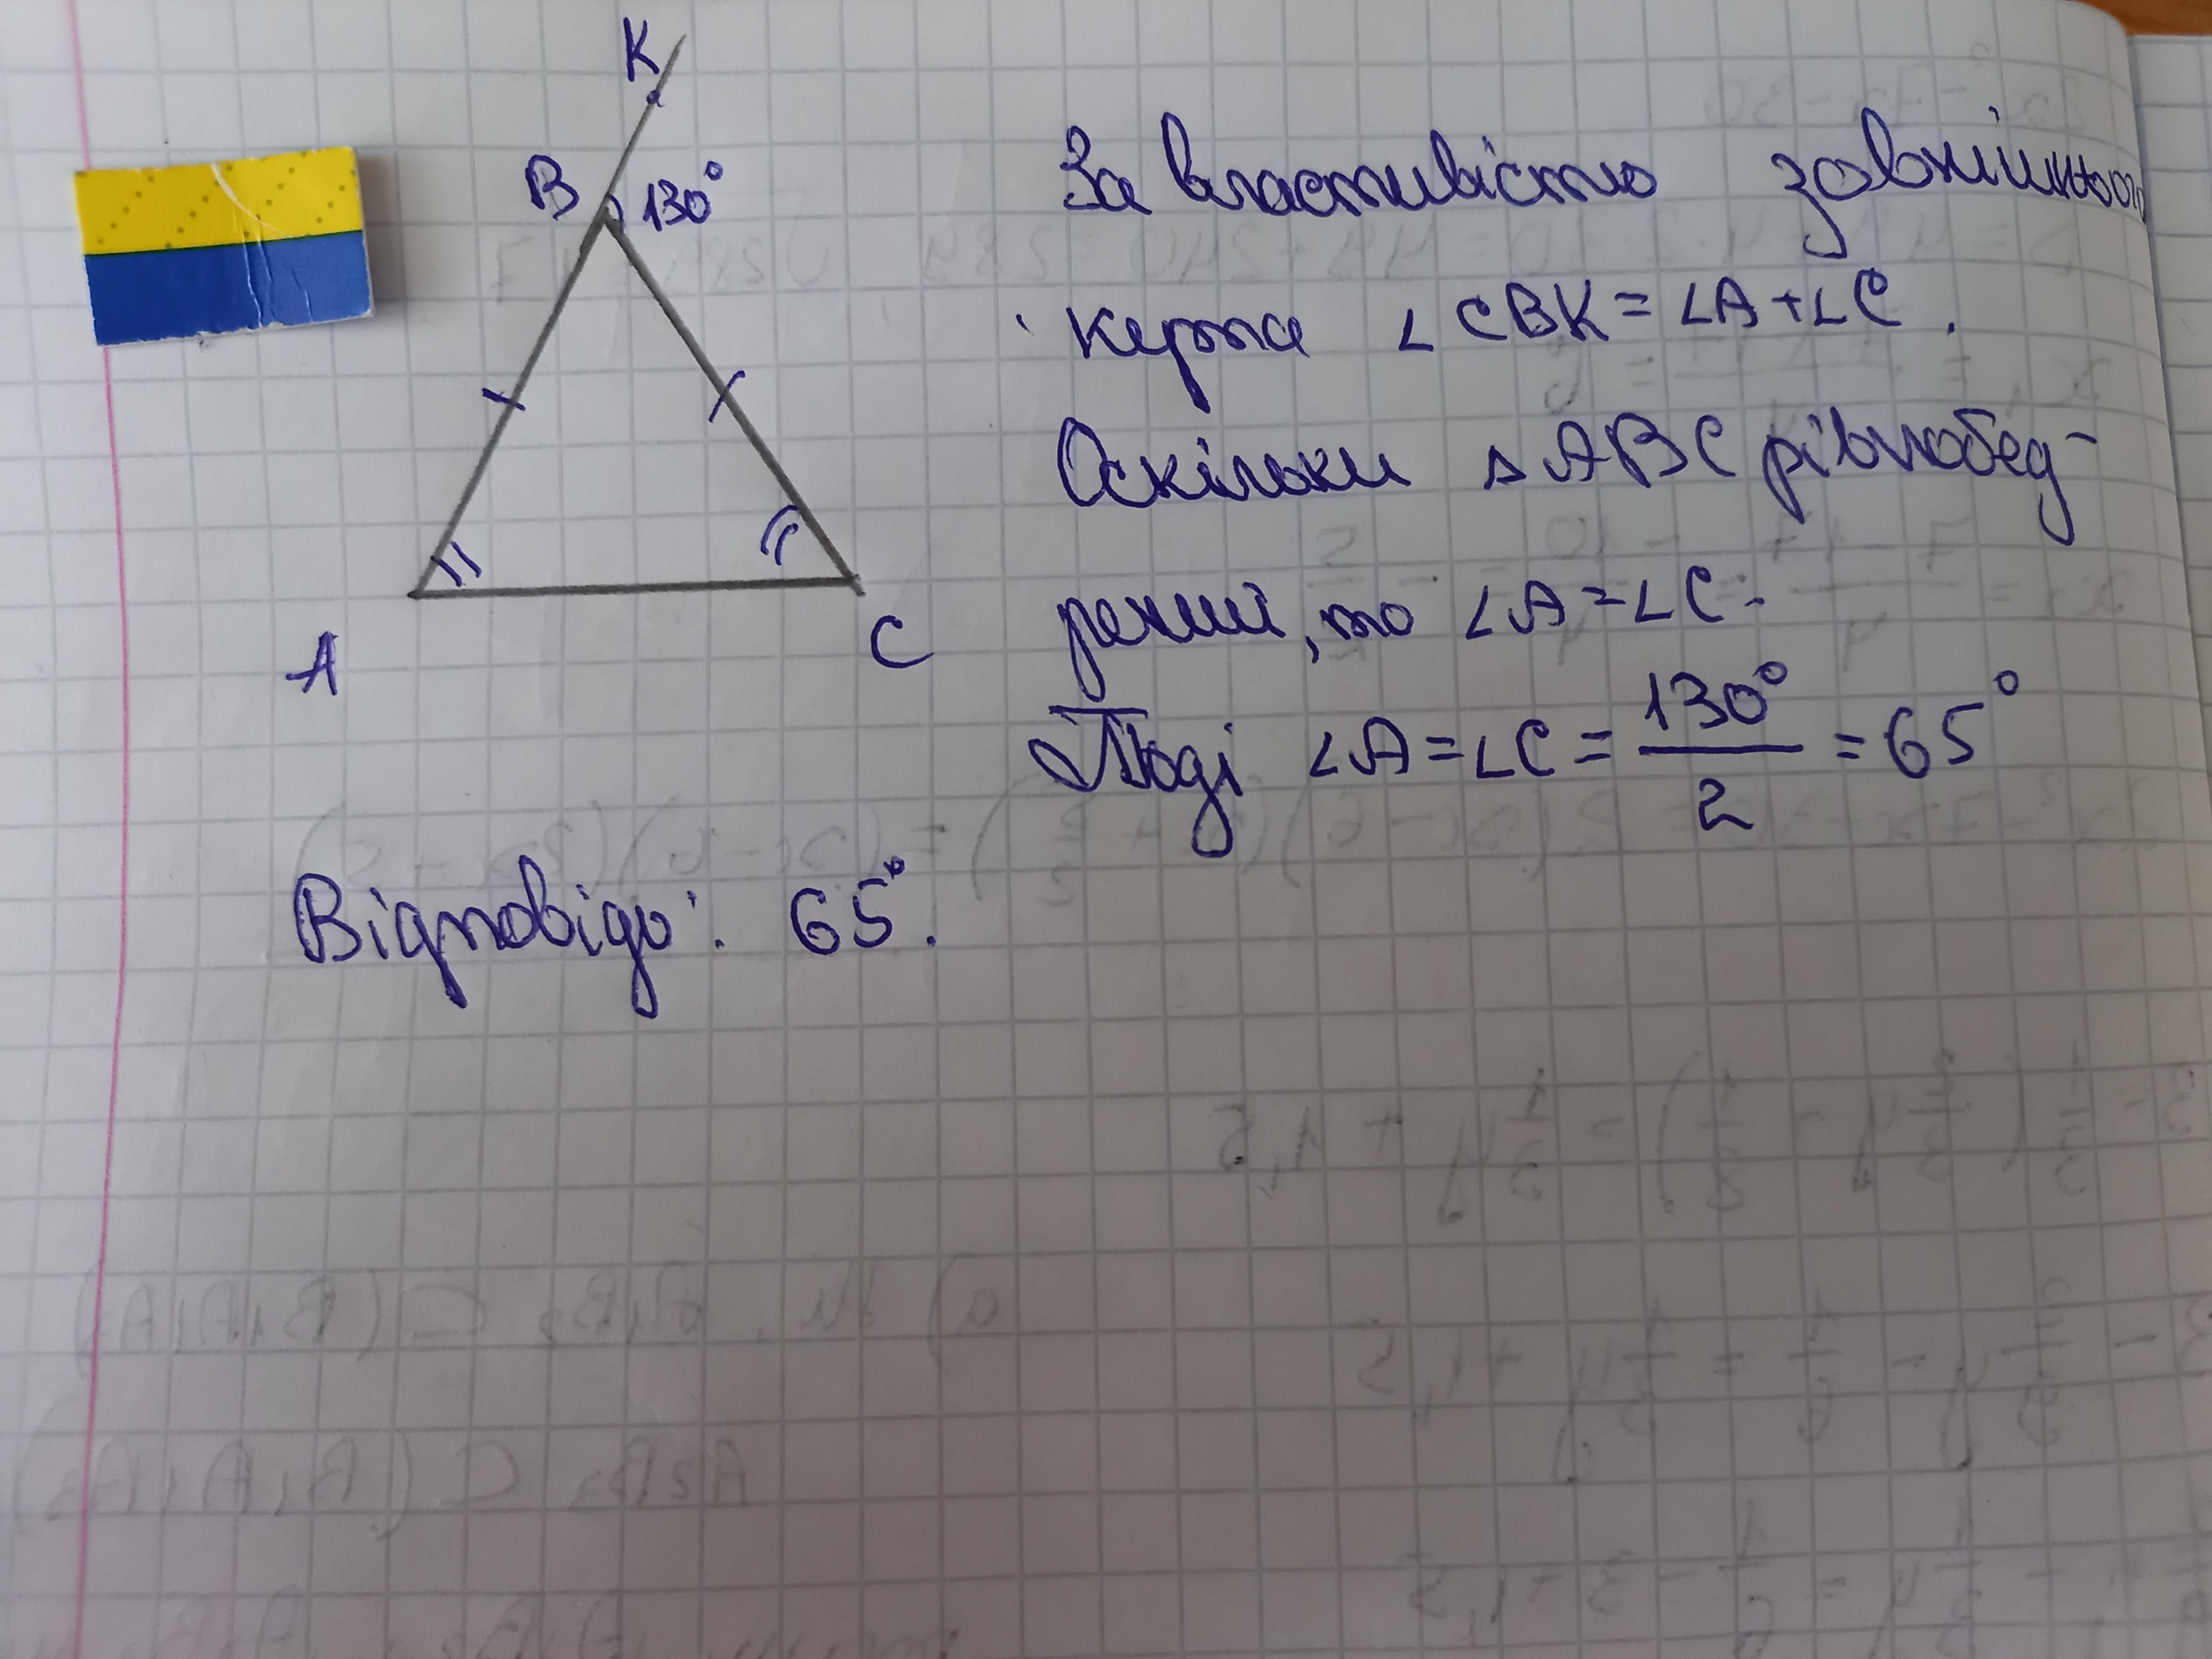 K
B 130°
A
C
За властивістю зовнішнього
кута ∠CBK = ∠A + ∠C.
Оскільки △ABC рівнобед-
рений, то ∠A = ∠C.
Тоді ∠A = ∠C = 130° / 2 = 65°
Відповідь: 65°.